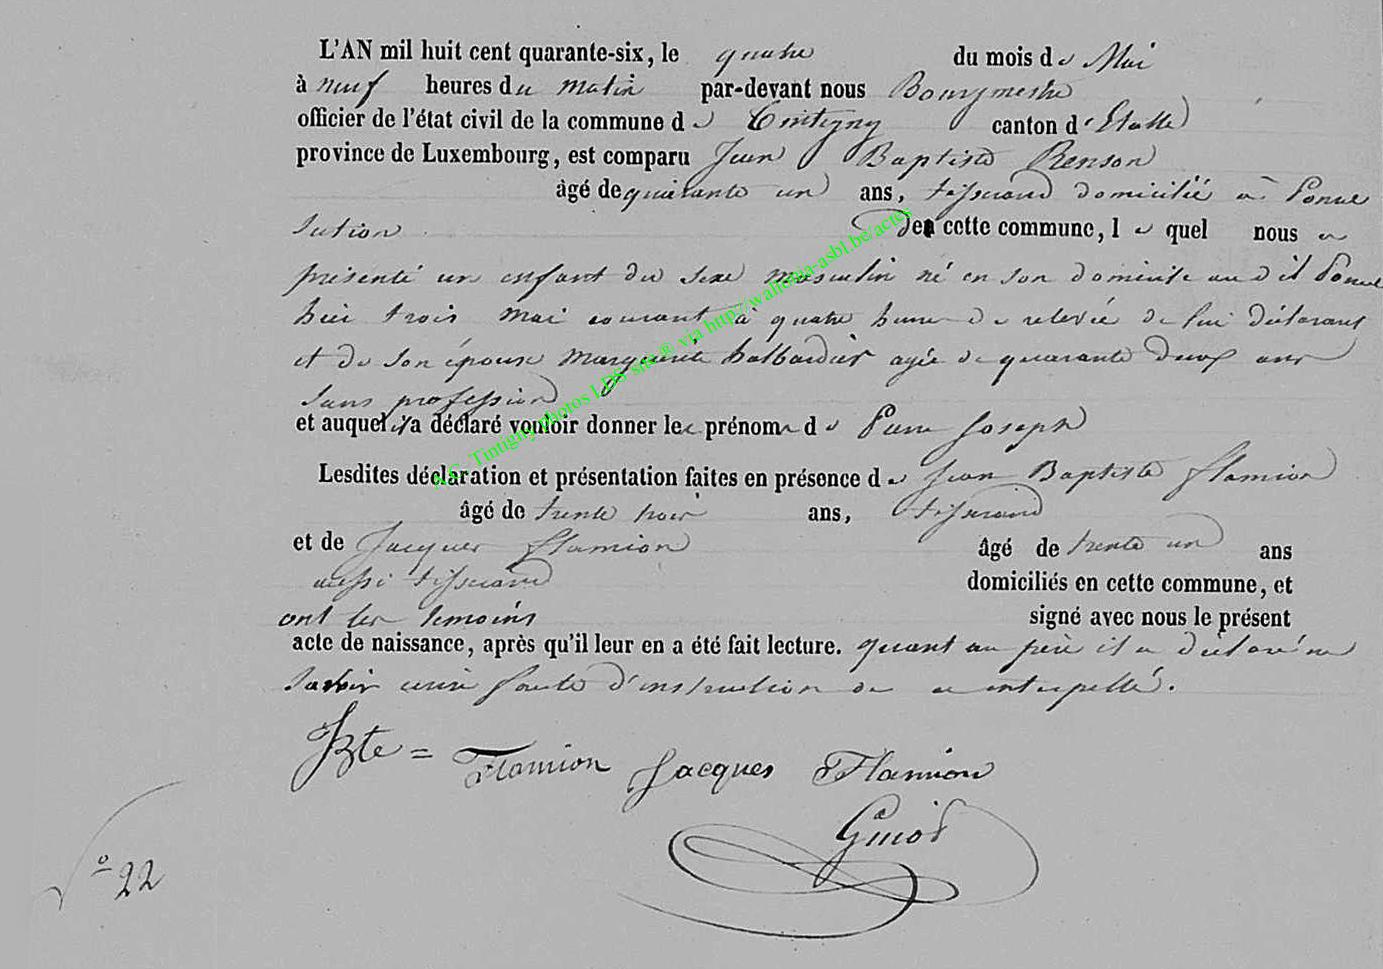 L'AN mil huit cent quarante-six, le quatre du mois de Mai
à neuf heures du matin par-devant nous Bourgmestre
officier de l'état civil de la commune de Tintigny canton d'Etalle
province de Luxembourg, est comparu Jean Baptiste Renson
âgé de quarante un ans, tisserand domicilié à
section de cette commune, lequel nous a
présenté un enfant du sexe masculin né en son domicile au dit
hier trois mai courant à quatre heures de relevée de lui déclarant
et de son épouse Marguerite halbardier agée de quarante deux ans
sans profession
et auquel il a déclaré vouloir donner les prénoms de Pierre Joseph
Lesdites déclaration et présentation faites en présence de Jean Baptiste Flamion
âgé de trente trois ans, tisserand
et de Jacques Flamion âgé de trente un ans
aussi tisserand domiciliés en cette commune, et
ont les témoins signé avec nous le présent
acte de naissance, après qu'il leur en a été fait lecture. quant au père il a déclaré ne
savoir écrire faute d'instruction de ce interpellé.
JBte = Flamion Jacques Flamion
Guiot
N° 22
A.C. Tintigny photos LDS site ® via http://wallonia-asbl.be/actes